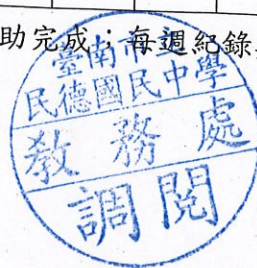 助完成；每週紀錄
臺南市立
民德國民中學
教務處
調閱